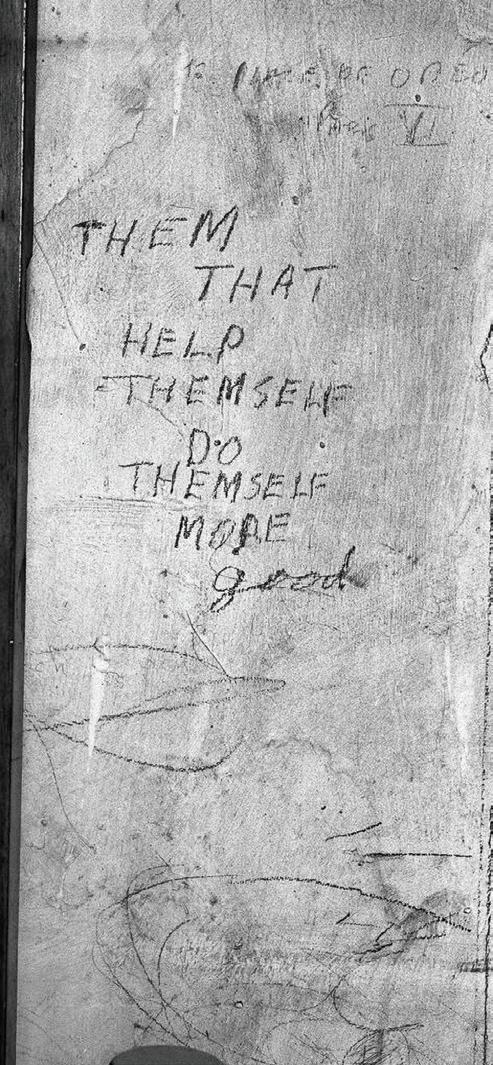 THEM
THAT
HELP
THEMSELF
DO
THEMSELF
MORE
good